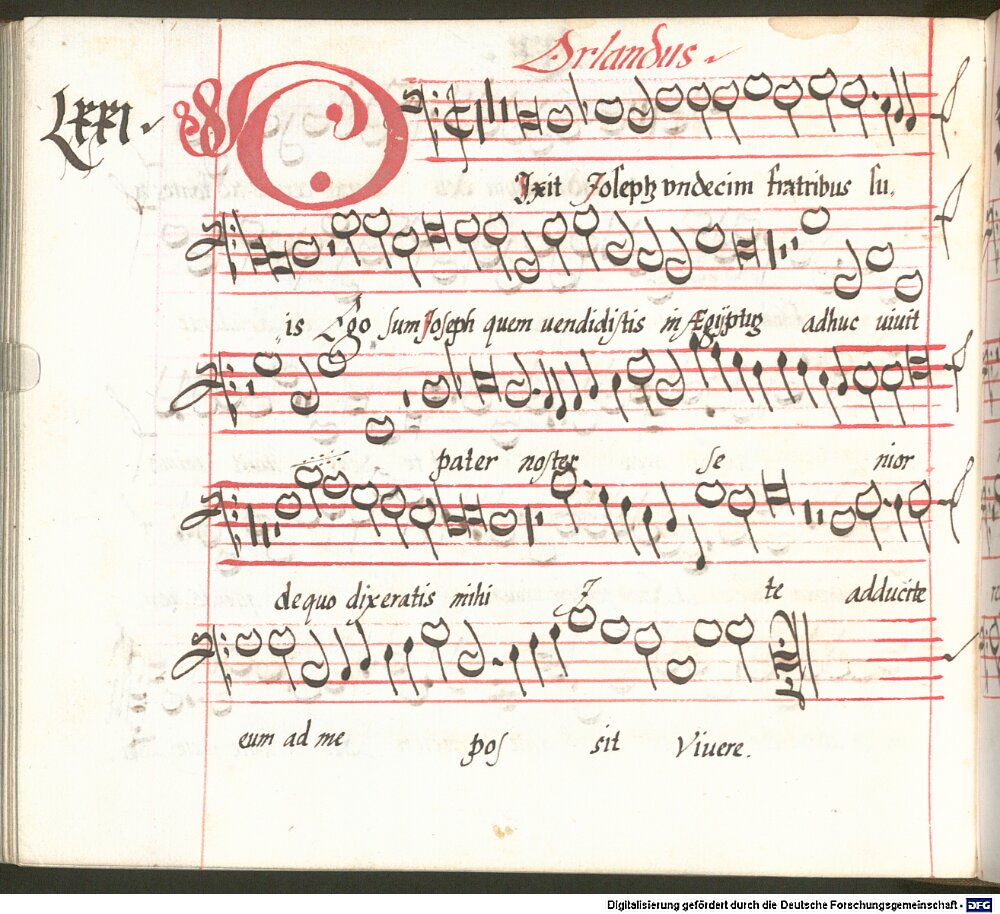 Orlandus
LXXI
DIxit Joseph vndecim fratribus su,
is Ego sum Joseph quem uendidistis in Ægÿptum adhuc uiuit
pater noster se nior
de quo dixeratis mihi I te adducite
eum ad me pos sit Viuere.
Digitalisierung gefördert durch die Deutsche Forschungsgemeinschaft - DFG